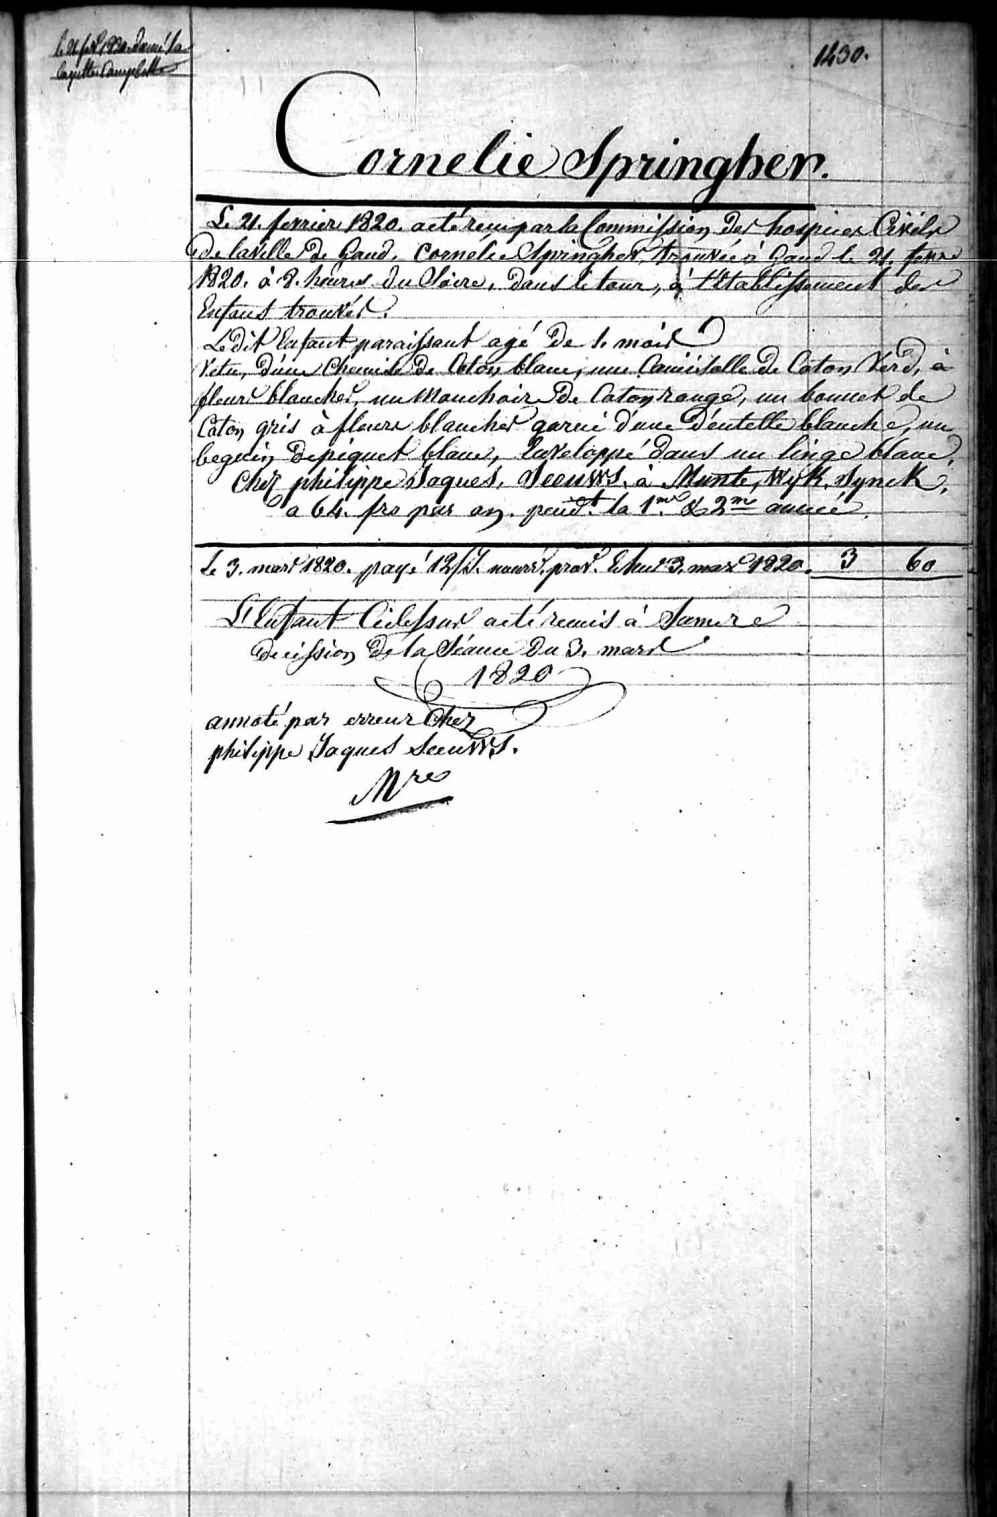 le 21 fevr 1820. donné la
layette complette
1430.
Cornelie Springher.
Le 21. fevrier 1820. a été recu par la Commission des hospices Civils
de la ville de Gand. Cornelie Springher, trouvée à Gand le 21 fevr
1820. à 8. heures du Soire, dans le tour, à l'Etablissement des
Enfans trouvés.
Le dit Enfant paraissant agé de 1. mois
Vetu, d'une Chemise de Coton blanc, une Camisolle de Coton Verd, à
fleurs blanches, un Mouchoir de Coton rouge, un bonnet de
Coton gris à fleurs blanches garni d'une déntelle blanche, un
beguin de piquet blanc, Enveloppé dans un linge blanc.
Chez philippe Jaques, Seeuws. à Munte, Wyk. Synck,
a 64. frs par an. pendt. la 1me & 2me année.
Le 3. mars 1820. payé 12/J. nourr. prov. Echu 3. mars 1820. 3 60
L'Enfant Cidessus a été remis à Sa mere
decission de la Séance du 3. mars
1820
annoté par erreur Chez
philippe Jaques Seeuws.
Nre